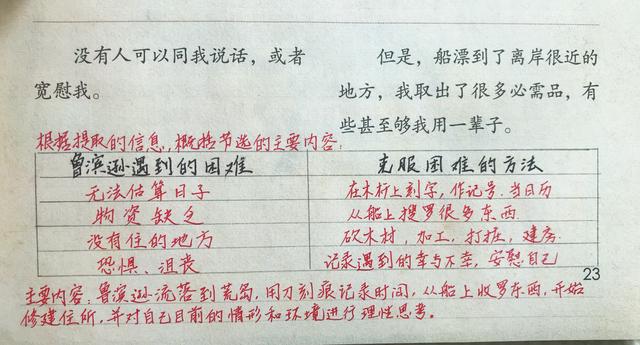 没有人可以同我说话，或者
宽慰我。
但是，船漂到了离岸很近的
地方，我取出了很多必需品，有
些甚至够我用一辈子。
根据提取的信息，概括节选的主要内容：
鲁滨逊遇到的困难 克服困难的方法
无法估算日子 在木杆上刻字，作记号.当日历
物资缺乏 从船上搜罗很多东西
没有住的地方 砍木材，加工，打桩，建房.
恐惧、沮丧 记录遇到的幸与不幸，安慰自己
23
主要内容：鲁滨逊流落到荒岛，用刀刻痕记录时间，从船上收罗东西，开始
修建住所，并对自己目前的情形和环境进行理性思考。